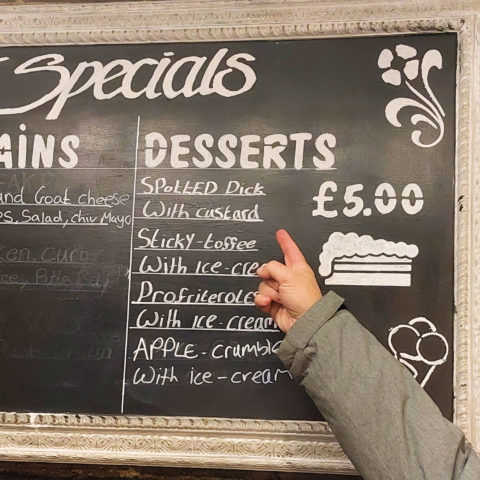 Specials
AINS
and Goat cheese
PS, Salad, chiv Mayo
DESSERTS
£5.00
SPOTTED DICK
With custard
Sticky-toffee
With Ice-cre
Profriteroles
With Ice-cream
APPLE-crumble
With ice-cream